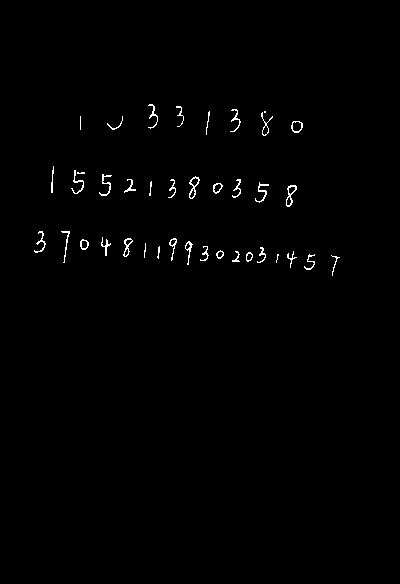 1 ں 3 3 1 3 8 0
1 5 5 2 1 3 8 0 3 5 8
3 7 0 4 8 1 1 9 9 3 0 2 0 3 1 4 5 7